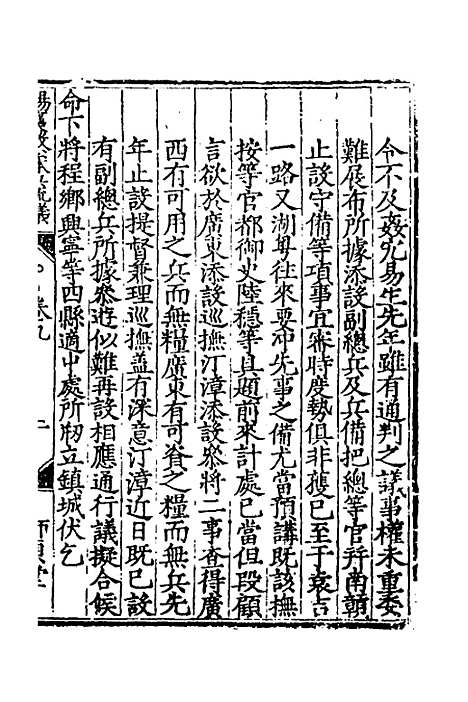 令不及姦宄易生先年雖有通判之議事權未重委
難展布所據添設副總兵及兵備把總等官并南贛
止設守備等項事宜審時度勢俱非獲已至于袁吉
一路又湖粤往來要冲先事之備尤當預講既該撫
按等官都御史陸穩等具題前來計處已當但段顧
言欲於廣東添設巡撫汀漳添設叅將二事查得廣
西有可用之兵而無糧廣東有可資之糧而無兵先
年止設提督兼理巡撫蓋有深意汀漳近日既已設
有副總兵所據叅遊似難再設相應通行議擬合候
命下將程鄉興寧等四縣適中處所剏立鎮城伏乞
卷九
二